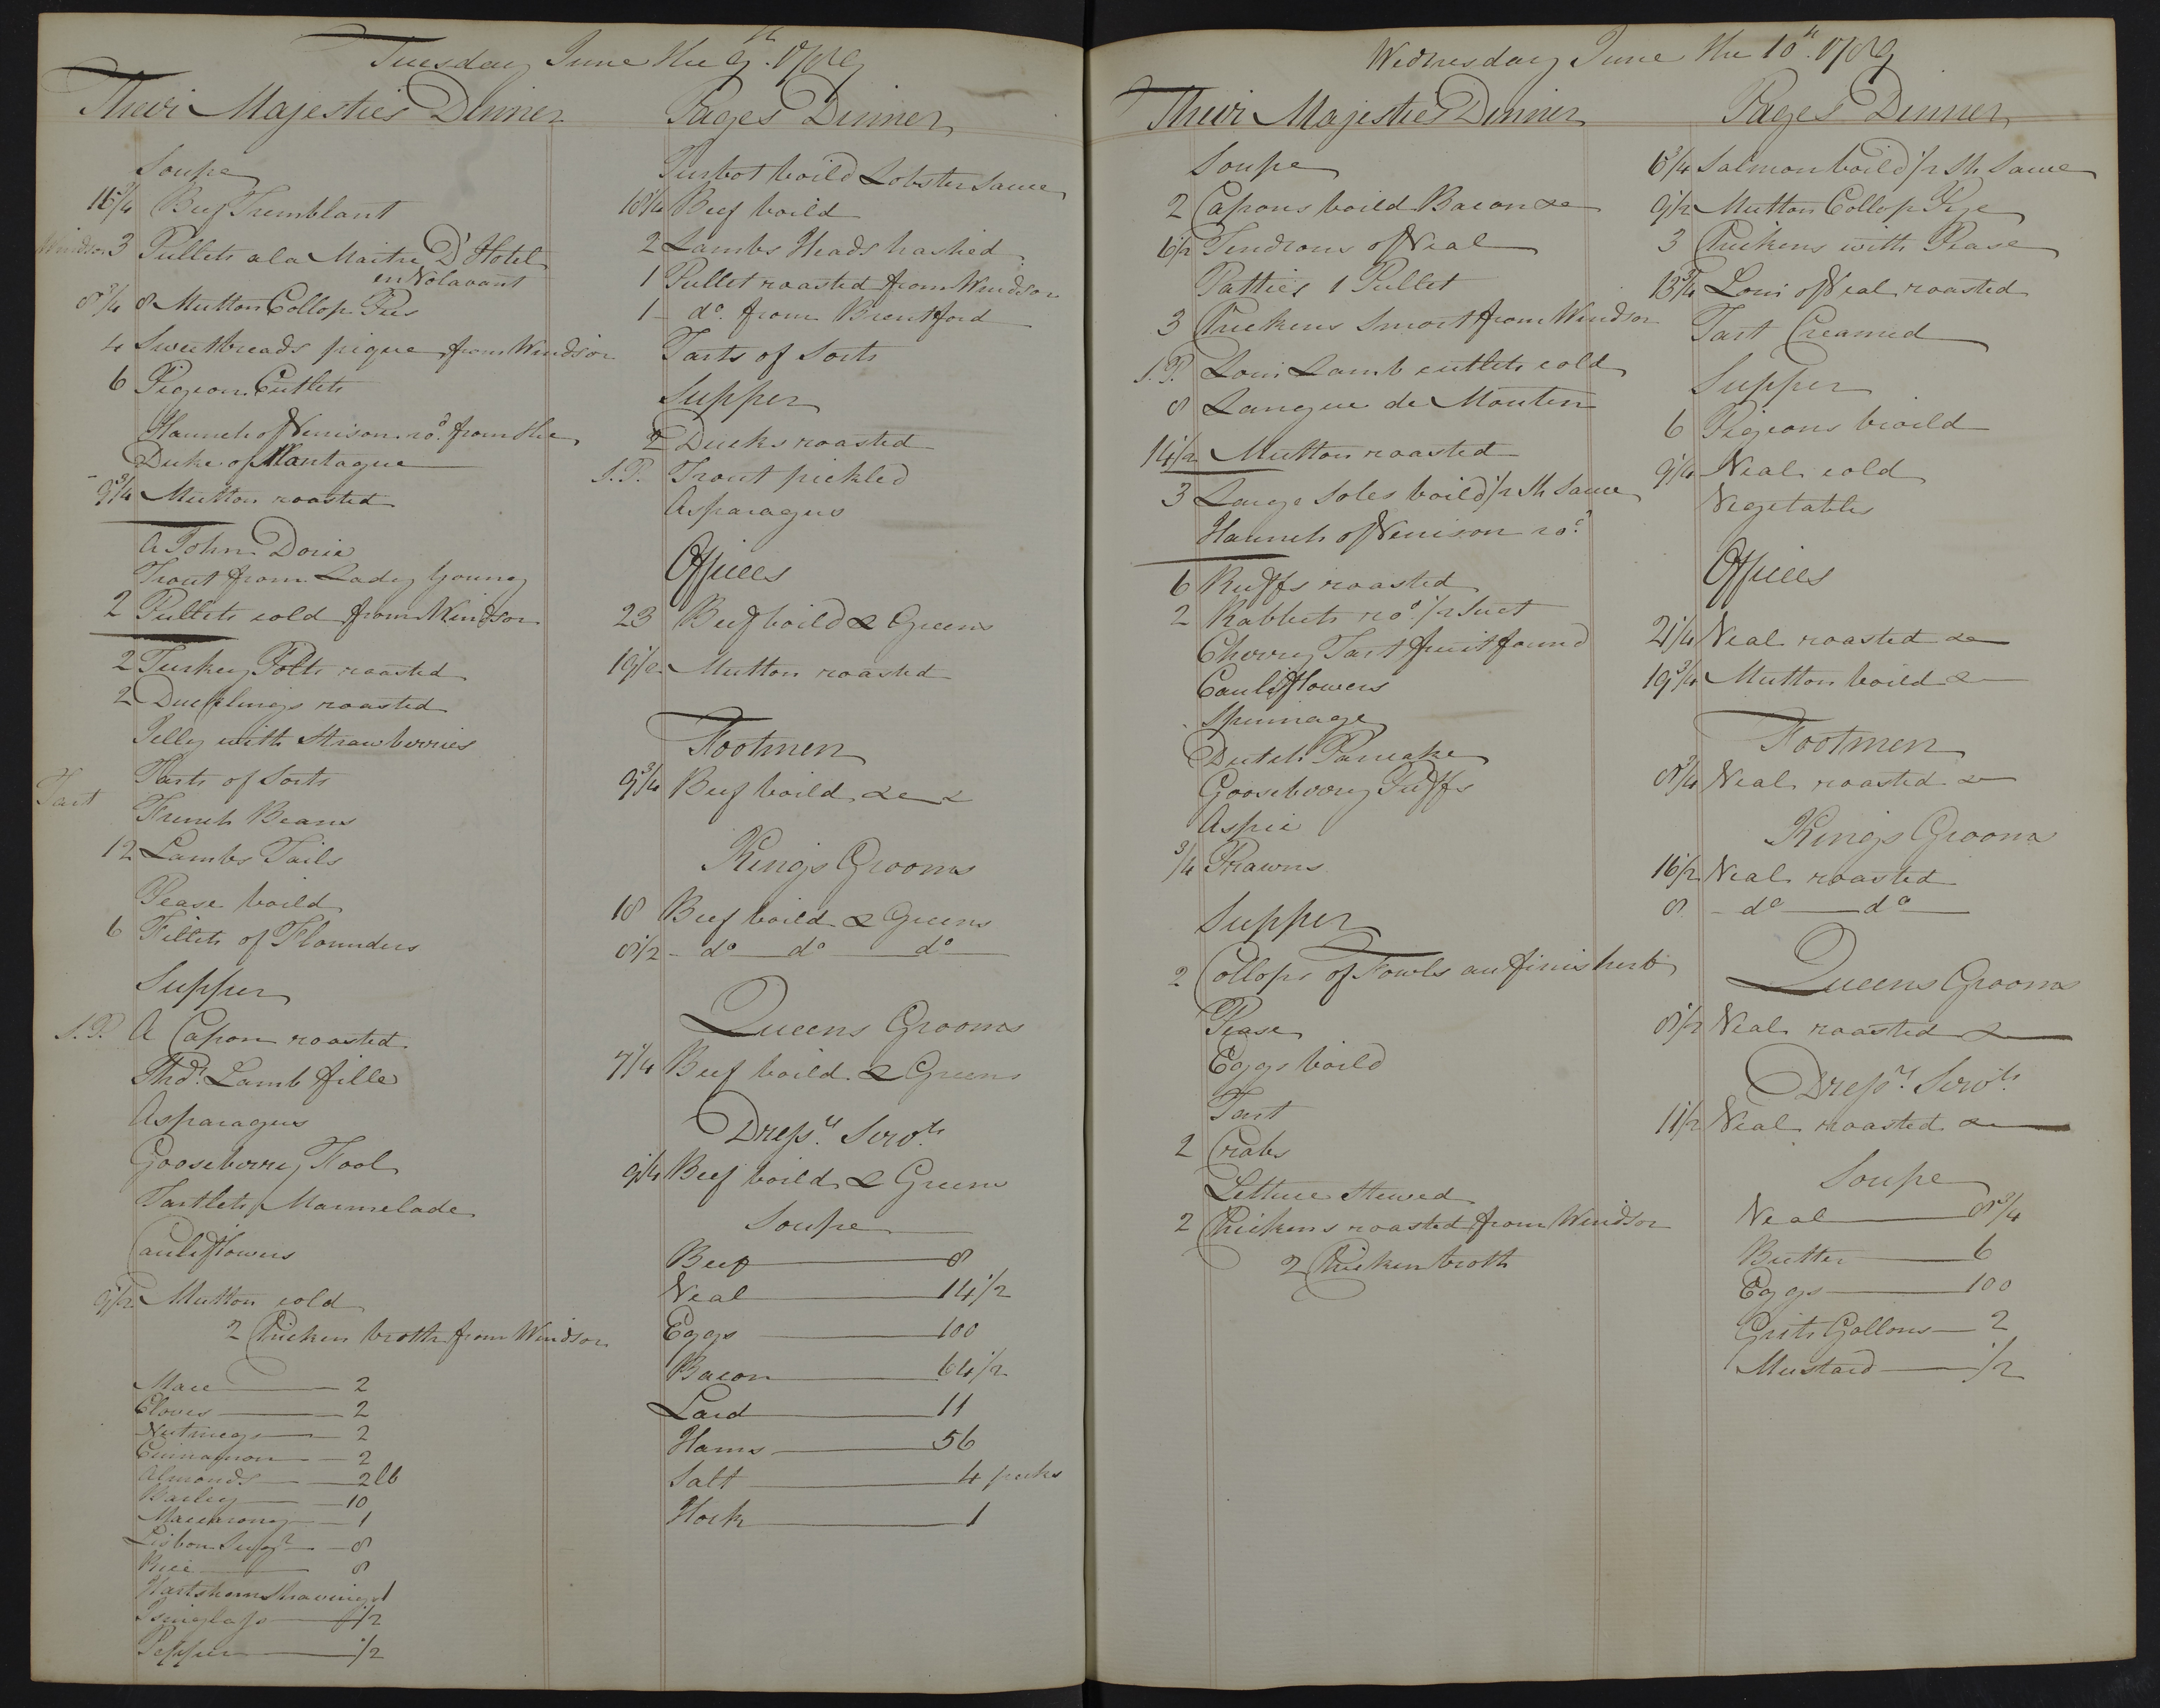 Tuesday June the 9th 1789
Their Majesties Dinner
Soupe
16 3/4 Beef Tremblant
Windsor 3 Pullets a la Maitre D'Hotel
en Volavant
8 3/4 8 Mutton Collop Pies
4 Sweetbreads pique from Windsor
6 Pigeon Cutlets
Haunch of Venison ro.d from the
Duke of Mantague
9 3/4 Mutton roasted
A John Dorie
Trout from Lady Young
2 Pullets cold from Windsor
2 Turkey Polts roasted
2 Ducklings roasted
Jelly with Strawberries
Tart Tarts of Sorts
French Beans
12 Lambs Tails
Pease boild
6 Fillets of Flounders
Supper
S.P. A Capon roasted
Thd. Lamb fille
Asparagus
Gooseberrey Fool
Tartlets Marmelade
Cauliflowers
9 1/2 Mutton cold
2 Chicken broth from Windsor
Mace 2
Cloves 2
Nutmegs 2
Cinnamon 2
Almonds 2 lb
Barley 10
Maccarony 1
Lisbon Sugr 8
Rice 8
Hartshorn Shavings 1
Isinglass 1/2
Pepper 1/2
Pages Dinner
Turbot boild Lobster Sauce
10 1/4 Beef boild
2 Lambs Heads hashed
1 Pullet roasted from Windsor
1 do. from Brentford
Tarts of Sorts
Supper
2 Ducks roasted
S.P. Trout pickled
Asparagus
Offices
23 Beef boild & Greens
19 1/2 Mutton roasted
Footmen
9 3/4 Beef boild &c
Kings Grooms
18 Beef boild & Greens
8 1/2 - do do do
Queens Grooms
7 1/4 Beef boild & Greens
Dressrs Servts
9 1/4 Beef boild & Greens
Soupe
Beef 8
Veal 14 1/2
Eggs 100
Bacon 64 1/2
Lard 11
Hams 56
Salt 4 pecks
Hock 1
Wednesday June the 10th 1789
Their Majesties Dinner
Soupe
2 Capons boild Bacon &c
6 1/2 Tendrons of Veal
Patties 1 Pullet
3 Chickens Smort from Windsor
S.P. Loin Lamb cutlets cold
8 Langue de Mouton
14 1/2 Mutton roasted
3 Large Soles boild 1/2 Sh Sauce
Haunch of Venison ro.d
6 Ruffs roasted
2 Rabbets ro.d 1/2 Suet
Cherry Tart fruit found
Cauliflowers
Spinnage
Dutch Pancake
Gooseberrey Puffs
Aspic
3/4 Prawns
Supper
2 Collops of Fowls au finis herb
Pease
Eggs boild
Tart
2 Crabs
Lettuce Stewed
2 Chickens roasted from Windsor
2 Chicken broth
Pages Dinner
6 3/4 Salmon boild 1/2 Sh Sauce
9 1/2 Mutton Collop Pye
3 Chickens with Pease
13 3/4 Loin of Veal roasted
Tart Creamed
Supper
6 Pigeons broild
9 1/4 Veal cold
Vegetables
Offices
21 1/4 Veal roasted &c
19 3/4 Mutton boild &c
Footmen
8 3/4 Veal roasted &c
Kings Grooms
16 1/2 Veal roasted
8 - do do
Queens Grooms
8 1/2 Veal roasted &
Dressrs Servts
11 1/2 Veal roasted &c
Soupe
Veal 8 3/4
Butter 6
Eggs 100
Grits Gallons 2
Mustard 1/2